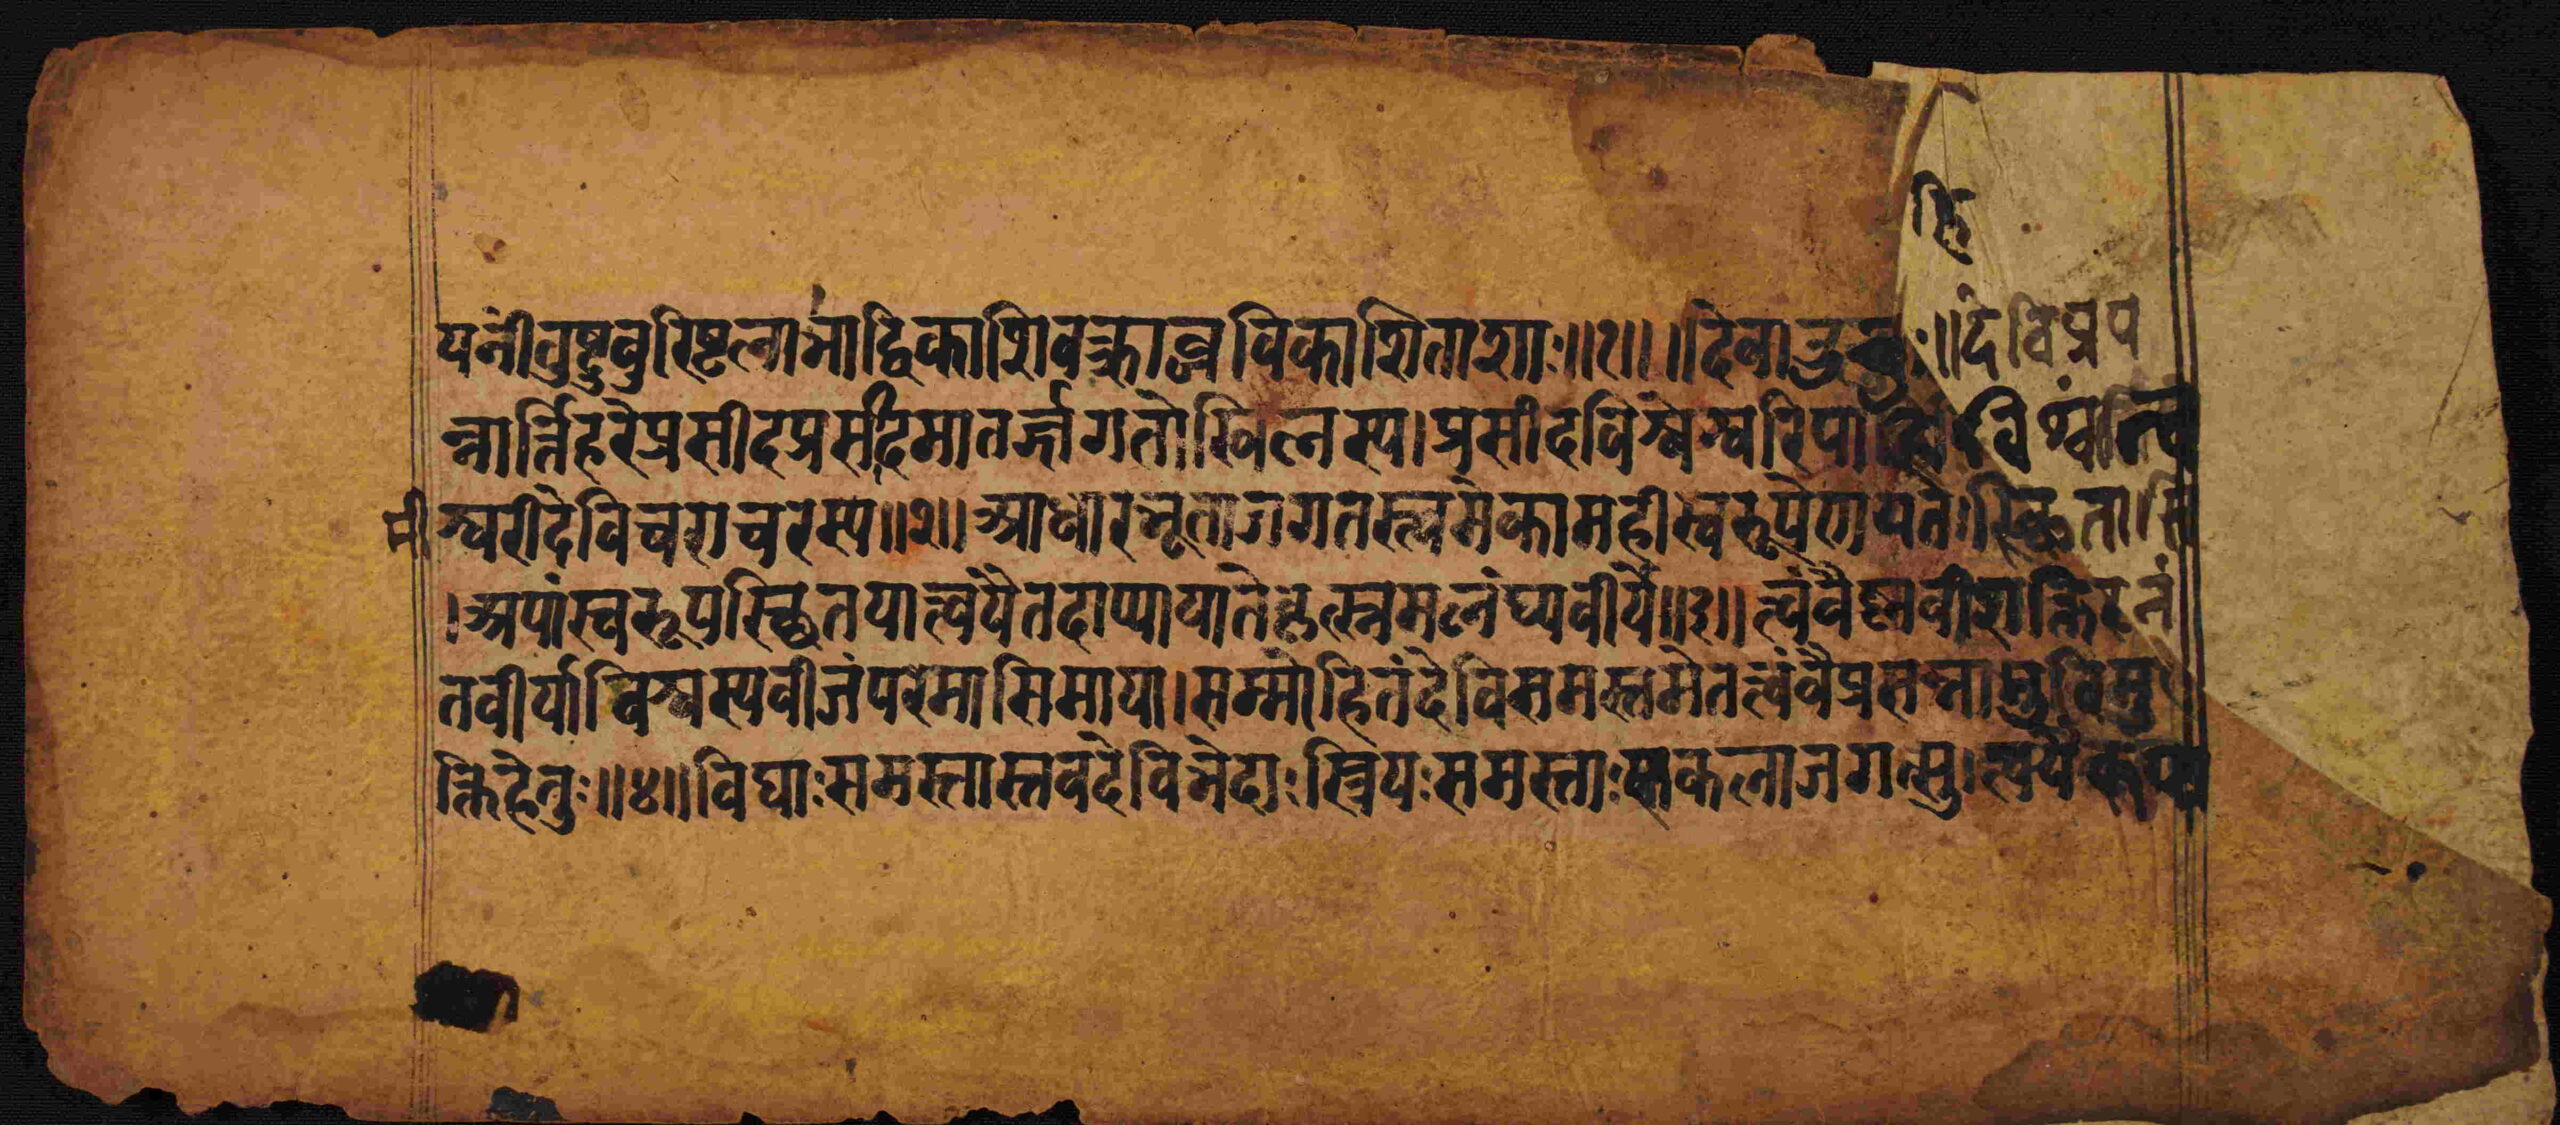 हि
यनीं तुष्टुवुरिष्टलाभाद्विकाशिवक्त्राब्जविकाशिताशाः॥१॥ ॥देवा उचुः॥देविप्रप
न्नार्त्तिहरेप्रसीदप्रसीदमातर्ज्जगतोखिलस्य।प्रसीदविश्वेश्वरिपाहिविश्वंत्वमी
श्वरीदेविचराचरस्य॥२॥आधारभूताजगतस्त्वमेकामहीस्वरूपेणयतःस्थितासि
।अपांस्वरूपस्थितयात्वयैतदाप्यायतेकृत्स्नमलंघ्यवीर्ये॥३॥त्वंवैष्णवीशक्तिरनं
तवीर्याविश्वस्यवीजंपरमासिमाया।सम्मोहितंदेविसमस्तमेतत्त्वंवैप्रसन्नाभुविमु
क्तिहेतुः॥४॥विद्याःसमस्तास्तवदेविभेदाःस्त्रियःसमस्ताःसकलाजगत्सु।त्वयैकया